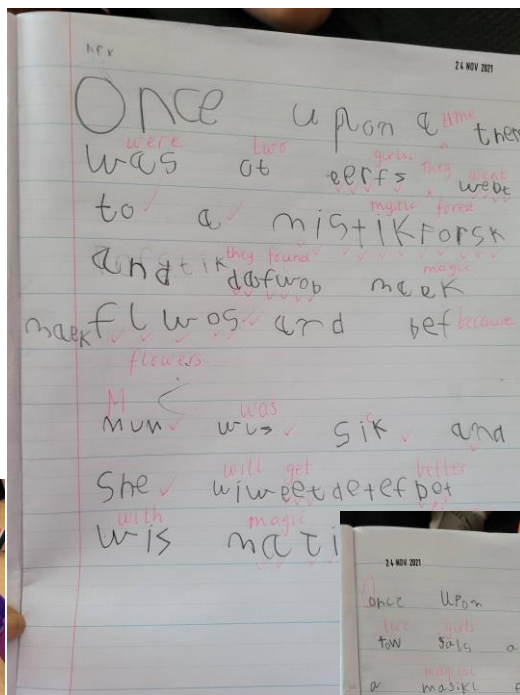 24 NOV 2021
Once upon a time ther
were two girls. They went
was ot eerfs webt
mystic forest
to a mistikforsk
they found magic
and tik dafwob maek
maek flwos and bef because
flowers
M
was
mum wus sik and
will get better
she wiweetdetef bet
with magic
wis mati
24 NOV 2021
Once upon
two girls
tow gals a
magical
a masikl